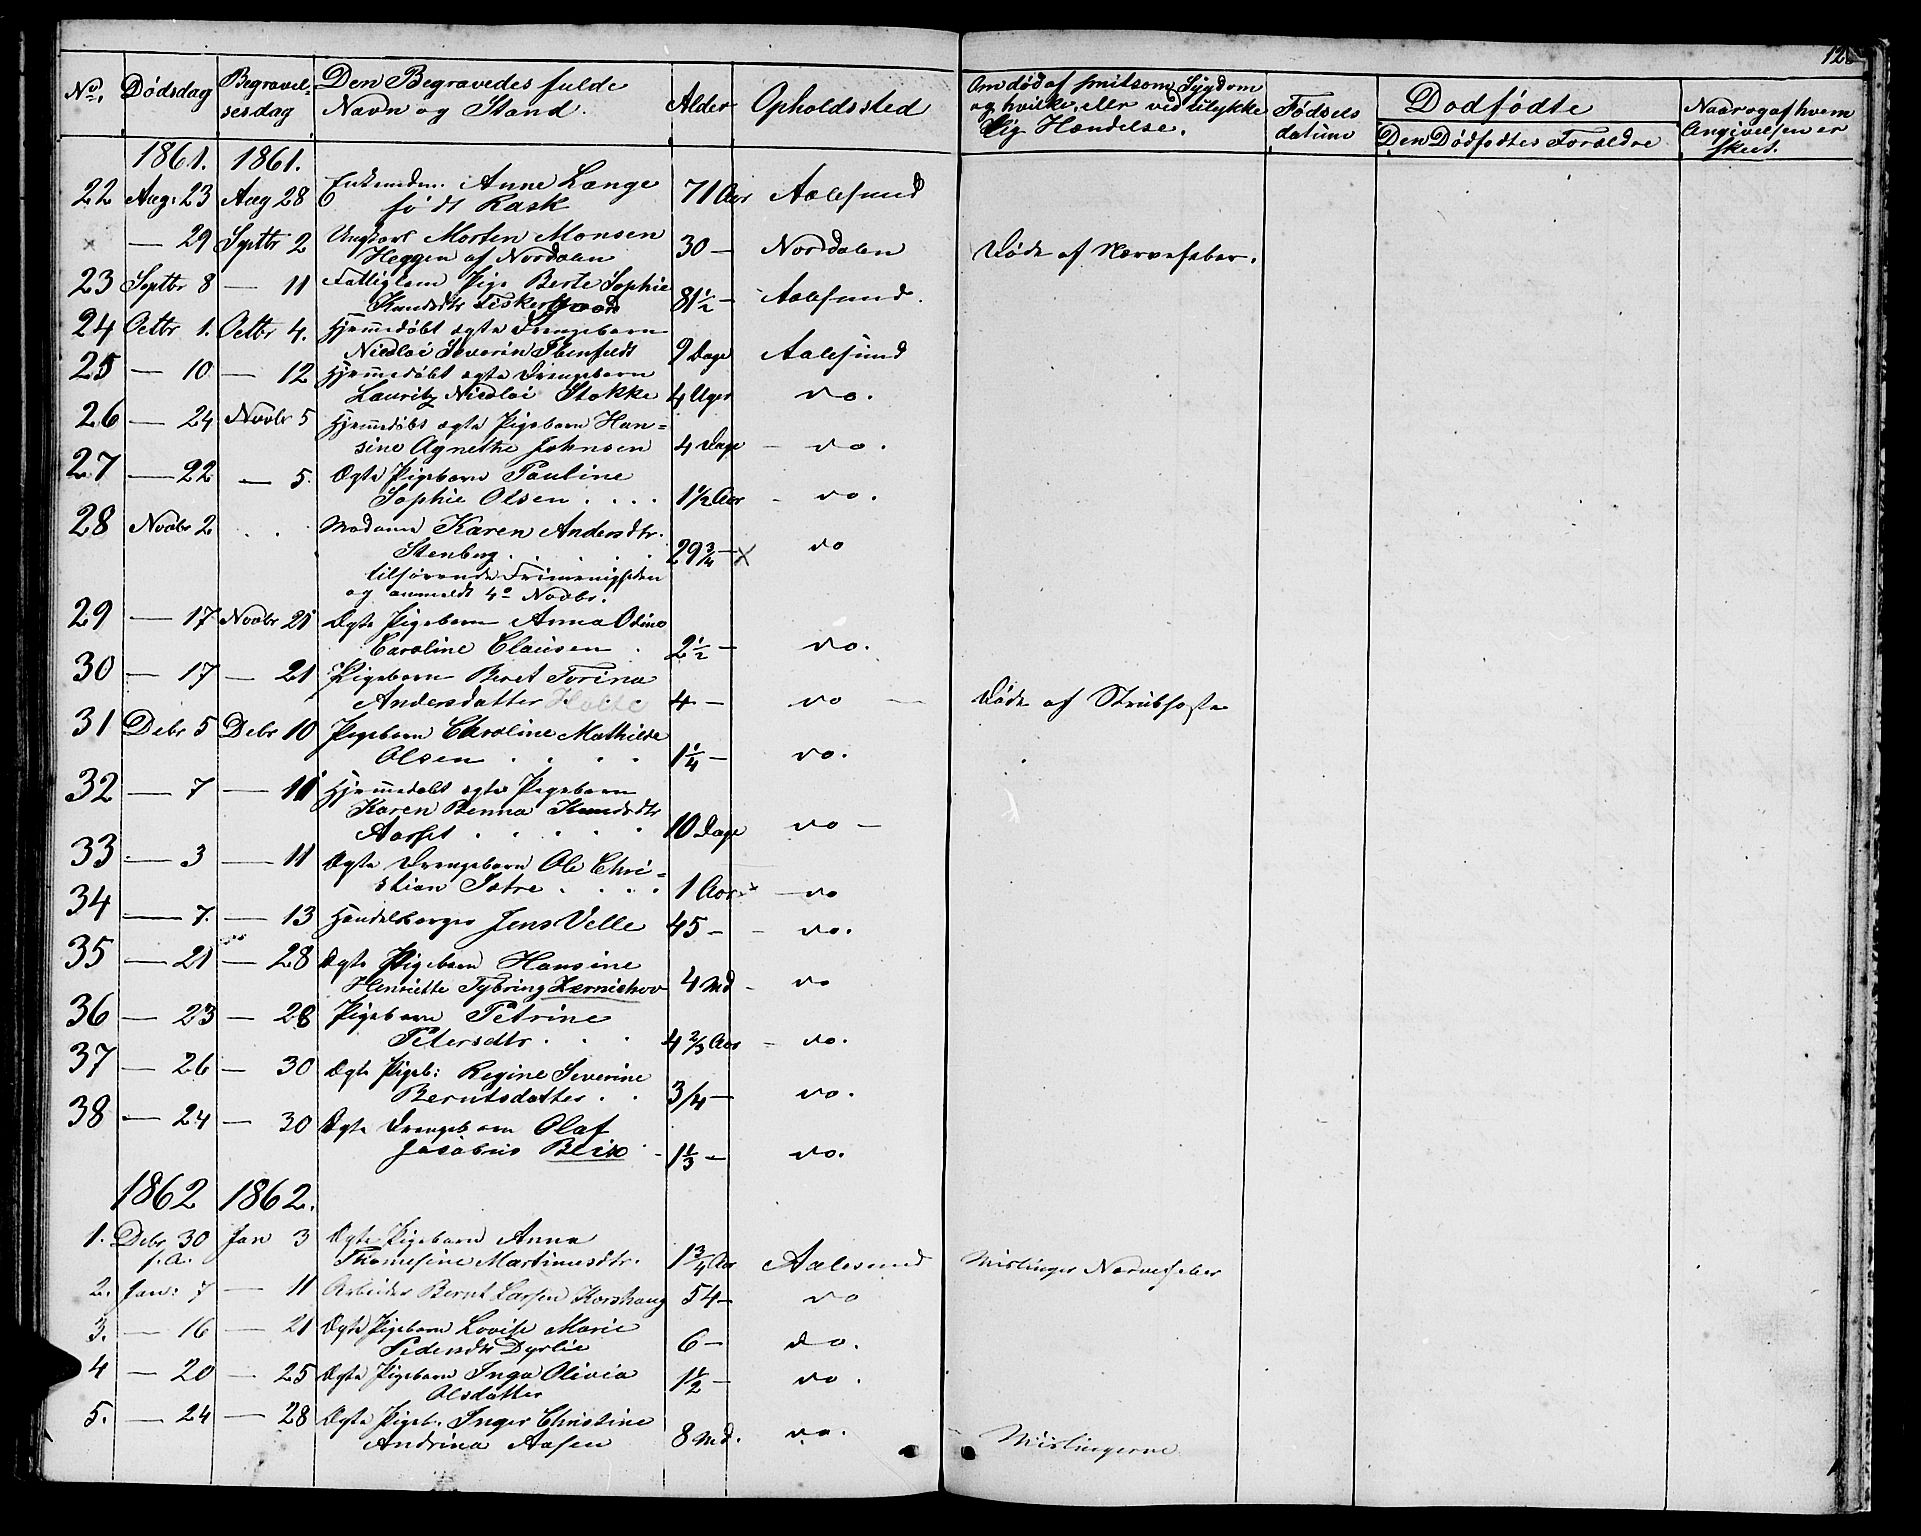 128
No. Dødsdag Begravel- Den Begravedes fulde Alder Opholdssted
sesdag Navn og Stand.
Om død af smitsom Sygdom og hvilken, eller ved ulykke
lig Hændelse.
Fødsels
datum
Dødfødte
Den Dødfødtes Forældre
Naar og af hvem
Angivelsen er
skeet.
1861. 1861.
22 Aug. 23 Aug 28 Enkemdm. Anne Lange 71 Aar Aalesund
født Rask
× — 29 Septbr 2 Ungkarl Morten Monsen 30 — Norddalen Døde af Nervefeber.
Heggen af Nordalen
23 Septbr 8 — 11 Fattiglem Pige Berte Sophie
Knudsdtr Fiskerstrand 81½ — Aalesund.
24 Octbr 1. Octbr 4. Hjemmedøbt ægte Drengebarn
Nicolai Severin Ibenfeldt 9 Dage Aalesund
25 — 10 — 12 Hjemmedøbt ægte Drengebarn
Lauritz Nicolai Stokke 4 Uger do.
26 — 24 Novbr 5 Hjemmedøbt ægte Pigebarn Han=
sine Agnethe Johnsen 4 Dage — do.
27 — 22 — 5. Ægte Pigebarn Pauline
Sophie Olsen . . . . 1½ Aar — do.
28 Novbr 2 . . Madame Karen Andersdtr.
Stenberg . . . . 29¾ — × do
tilhørende Frimenigheden
og anmeldt 4de Novbr.
29 — 17 Novbr 21 Ægte Pigebarn Anna Odine
Caroline Clausen . 2½ — do.
30 — 17 — 21 Pigebarn Beret Torina
Andersdatter Holte 4 — do — Døde af Strubehoste
31 Debr 5 Debr 10 Pigebarn Caroline Mathilde
Olsen . . . . 1¼ — do.
32 — 7 — 11 Hjemmedøbt ægte Pigebarn
Karen Benna Knudsdtr
Aarset . . . . . 10 Dage do —
33 — 3 — 11 Ægte Drengebarn Ole Chri=
stian Sætre . . . . 1 Aar × — do
34 — 7. — 13 Handelsborger Jens Velle 45 — — do.
35 — 21 — 28 Ægte Pigebarn Hansine
Henriette Tybring Zernichow 4 Md — do
36 — 23 — 28 Pigebarn Petrine
Petersdtr . . . 4⅔ Aar — do.
37 — 26 — 30 Ægte Pigeb: Regine Severine
Berntsdatter . . 3/4 — do.
38 — 24 — 30 Ægte Drengebarn Olaf
Jacobus Blix . — 1⅓ — do.
1862 1862.
1. Debr 30 Jan 3 Ægte Pigebarn Anna
f. A. Thomesine Martinusdtr. 1¾ Aar Aalesund Mislinger Nervefeber
2. Jan: 7 — 11 Arbeider Bernt Larsen Korshaug 54 — do
3. — 16 — 21 Ægte Pigebarn Lovise Marie
Pedersdtr Dyrlie 6 — do.
4 — 20 — 25 Ægte Pigebarn Inga Olivia
Olsdatter 1½ — do.
5. — 24 — 28 Ægte Pigeb. Inger Christine
Andrina Aasen 8 Md. do. Mislingerne